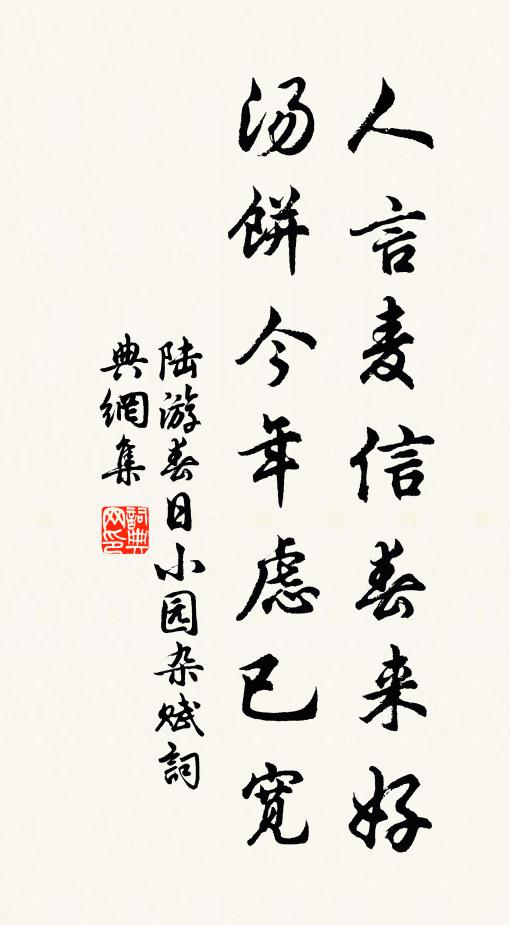 人言麦信春来好
汤饼今年虑已宽
陆游春日小园杂赋詞
典網集
詞典网印